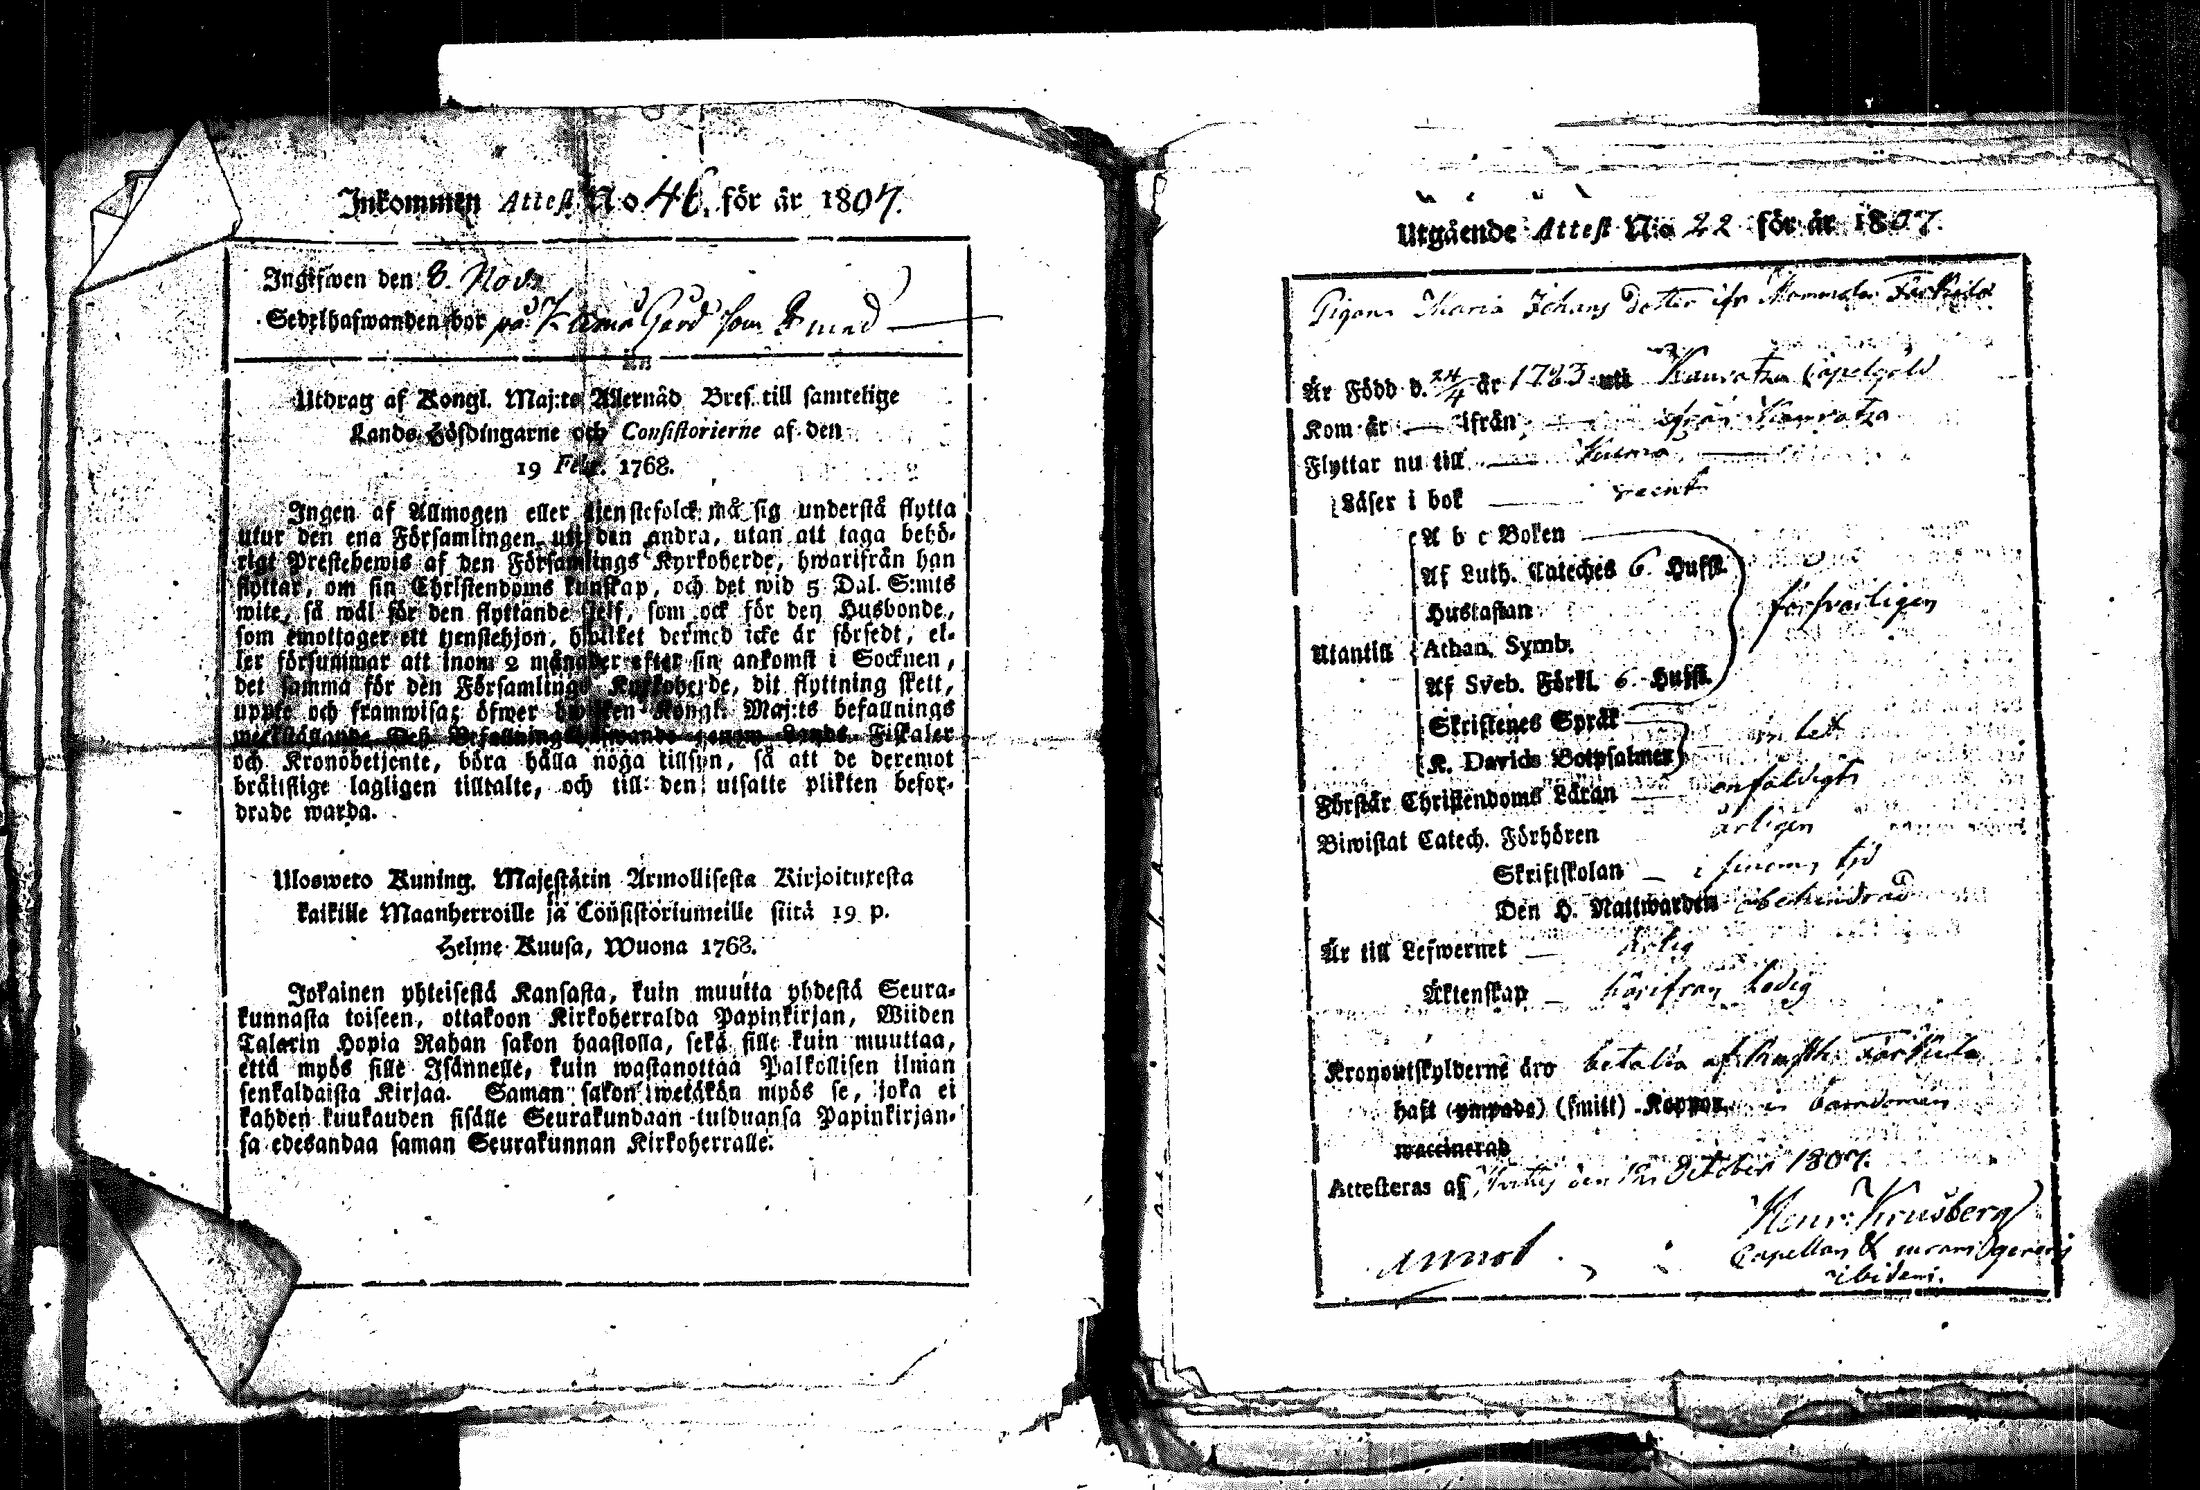 Inkommen Attest No 46. för år 1807.
Ingifwen den 8. Nov.
Sedelhafwanden bor på Gård som
Utdrag af Kongl. Maj:ts Allernåd Bref till samtelige
Lands Höfdingarne och Consistorierne af den
19 Febr. 1768.
Ingen af Allmogen eller tjenstefolck må sig understå flytta
utur den ena Församlingen uti den andra, utan att taga behö-
rigt Prestebewis af den Församlings Kyrkoherde, hwarifrån han
flyttar, om sin Christendoms kunskap, och det wid 5 Dal. S:mts
wite, så wäl för den flyttande sjelf, som ock för den Husbonde,
som emottager ett tjenstehjon, hwilket dermed icke är försedt, el-
ler försummar att inom 2 månader efter sin ankomst i Socknen,
det samma för den Församlings Kyrkoherde, dit flyttning skett,
uppte och framwisa; öfwer hwilken Kongl. Maj:ts befallnings
werkställande Deß Befallningshafwande genom Lands Fiskaler
och Kronobetjente, böra hålla noga tillsyn, så att de deremot
brättslige lagligen tilltalte, och till den utsatte plikten befor-
drade warda.
Uloswero Kuning. Majestätin Armollisesta Kirjoituxesta
kaikille Maanherroille ja Consistoriumeille siitä 19 p.
Helme Kuusa, Wuona 1768.
Jokainen yhteisestä Kansasta, kuin muutta yhdestä Seura-
kunnasta toiseen, ottakoon Kirkoherralda Papinkirjan, Wiiden
Talarin Hopia Rahan sakon haastolla, sekä sille kuin muuttaa,
että myös sille Isännelle, kuin wastanottaa Palkollisen ilman
senkaldaista Kirjaa. Saman sakon wetäkön myös se, joka ei
kahden kuukauden sisälle Seurakundaan tulduansa Papinkirjan-
sa edesandaa saman Seurakunnan Kirkoherralle.
Utgående Attest No 22 för år 1807.
Pigan Maria Johans Dotter ifr
Är Född d. 24/4 år 1783 uti Kauvatza Capelgäld
Kom år — ifrån — från Kauvatza
Flyttar nu till — Kumo —
Läser i bok —
A b c Boken
Af Luth. Cateches 6. Hufst.
Hustaflan
försvarligen
Utantill
Athan. Symb.
Af Sveb. Förkl. 6. Hufst.
Skriftenes Språk
K. Davids Botpsalmer
Förstår Christendoms Läran — enfaldigt
Biwistat Catech. Förhören årligen
Skriftskolan — i sinom tid
Den H. Nattwarden obehindrad
Är till Lefwernet —
Äktenskap — härifrån ledig
Kronoutskylderne äro betalta af
haft (ympade) (smitt) Koppor i barndomen
waccinerad
Attesteras af den 12 October 1807.
Henr: Krusberg
Capellan &
ibidem.
annot